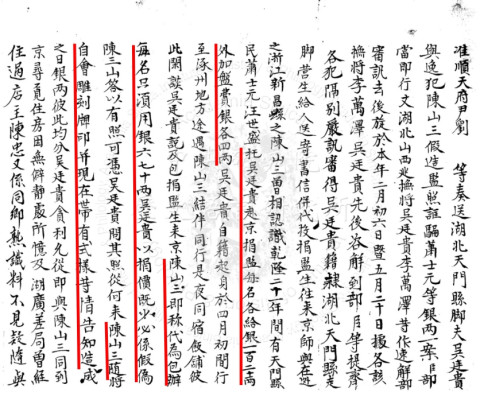 准順天府尹劉 等奏送湖北天門縣脚夫吳廷貴
與逸犯陳山三假造監照誆騙蕭士元等銀兩一案臣部
當即行文湖北山西廵撫將吳廷貴李萬澤昔作速解部
審訊去後茲於本年二月初六日暨五月二十日據各該
撫將李萬澤吳廷貴先後咨解到部臣等提齊
各犯隔別嚴訊審得吳廷貴籍隸湖北天門縣充
脚營生給人送寄書信併代投捐監生往來京師與在逃
之浙江新昌縣之陳山三曽相認識乾隆二十一年間有天門縣
民蕭士元汪世盛托吳廷貴赴京捐監每名各給銀一百二十兩
外加盤費銀各四兩吳廷貴自籍起身於四月初間行
至涿州地方途遇陳山三結伴同行是夜同宿飯舖彼
此閒談吳廷貴説及包捐監生來京陳山三即稱代為包辦
每名只須用銀六七十兩吳廷貴以捐價既少必係假偽
陳三山答以有照可憑吳廷貴問其照從何來陳山三随將
自會雕刻牌印并現在帶有式樣昔情告知造成
之日銀兩彼此均分吳廷貴貪利允從即與陳山三同到
京尋覓住房因無僻靜處所憶及湖廣差局曽經
住過店主陳忠又係同鄉熟識料不見疑隨與